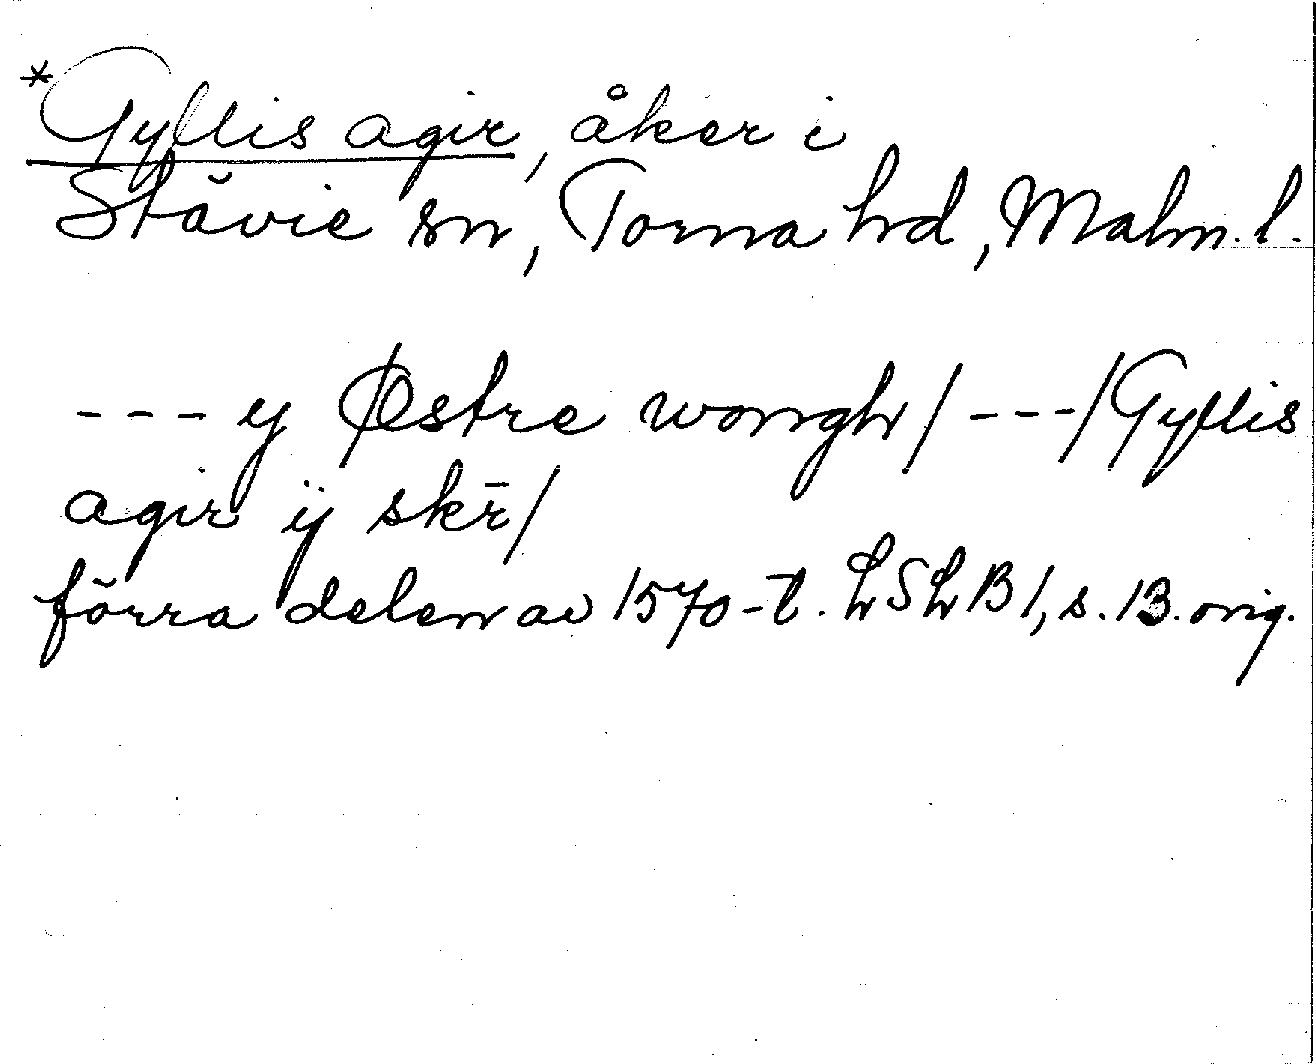 *Gyllis agir, åker i
Stävie sn, Torna hd, Malm. l.
--- y Østre wongh / --- / Gyllis
agir ÿ skr̄ /
förra delen av 1570-t. LSLB 1, s. 13. orig.